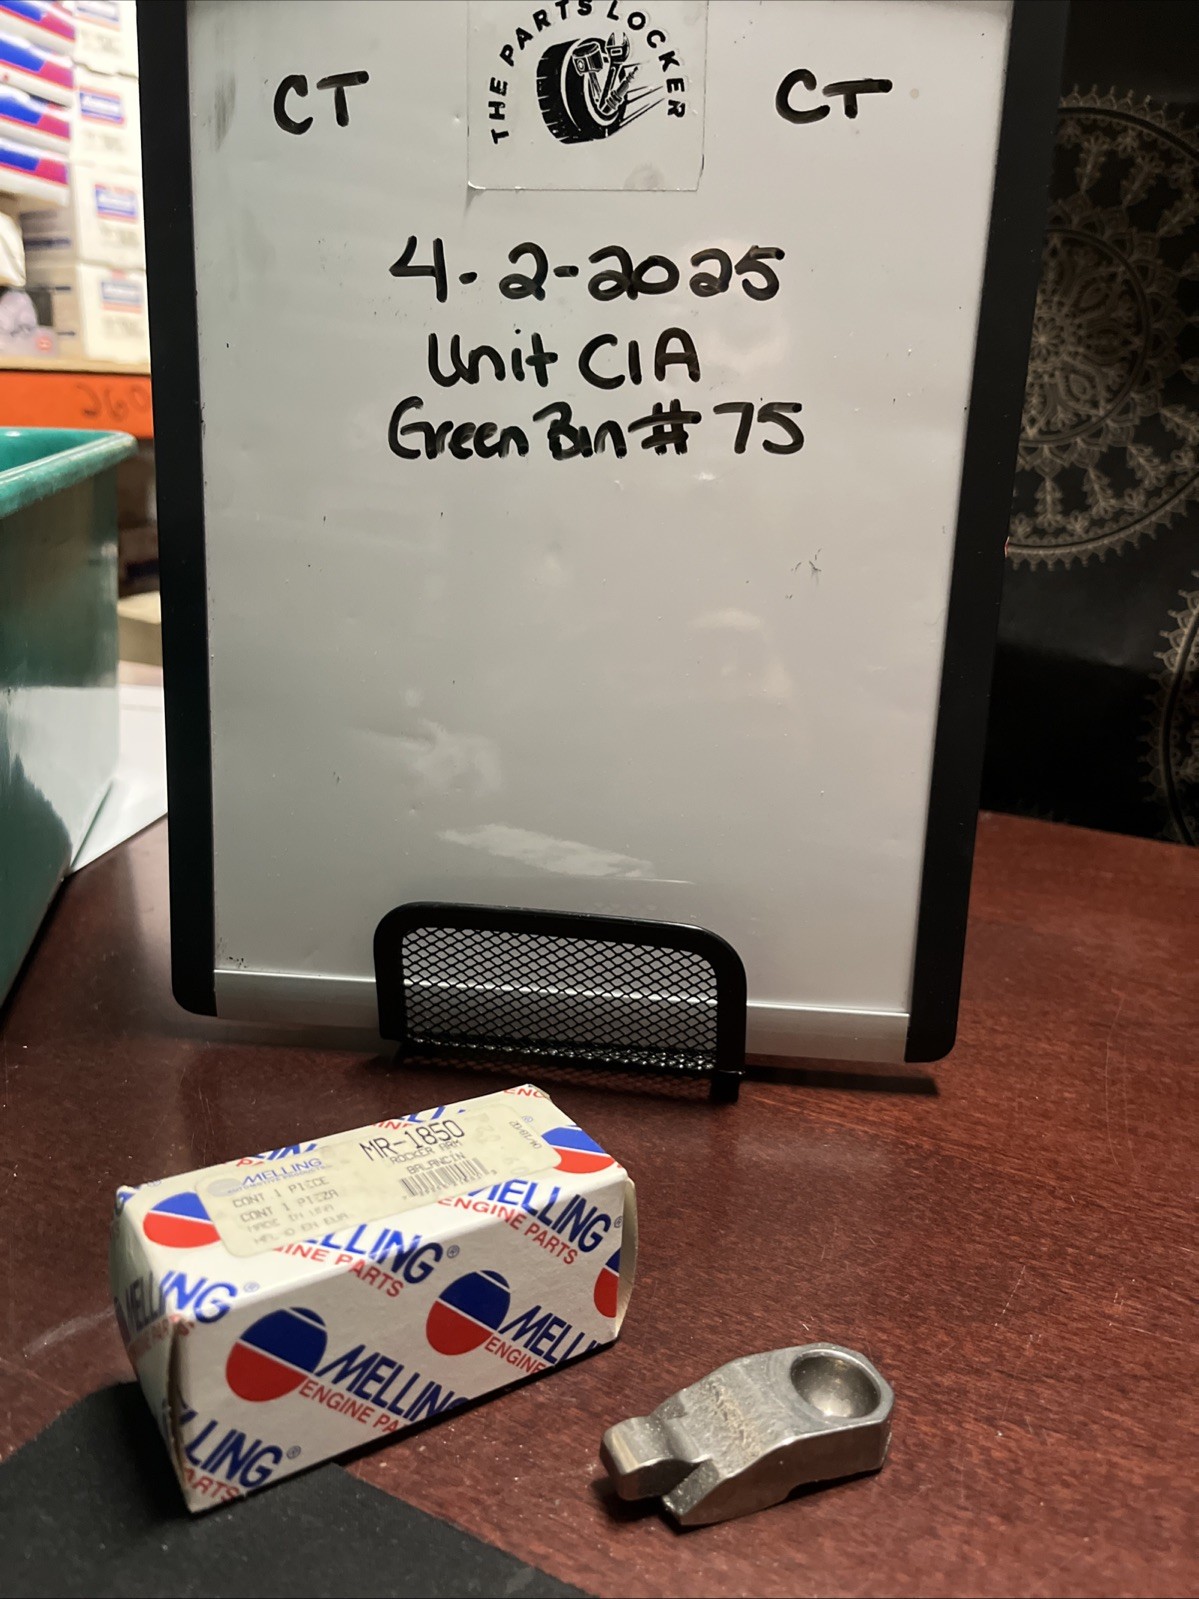 THE PARTS LOCKER
CT
CT
4-2-2025
Unit C1A
Green Bin # 75
260
MR-1850
ROCKER ARM
BALANCIN
MELLING
CONT 1 PIECE
CONT 1 PIEZA
MADE IN USA
MELLING®
ENGINE PARTS
MELLING®
ENGINE PARTS
MELLING
ENGINE PA
MELLI
ENGINE
ELLING®
LING®
ARTS